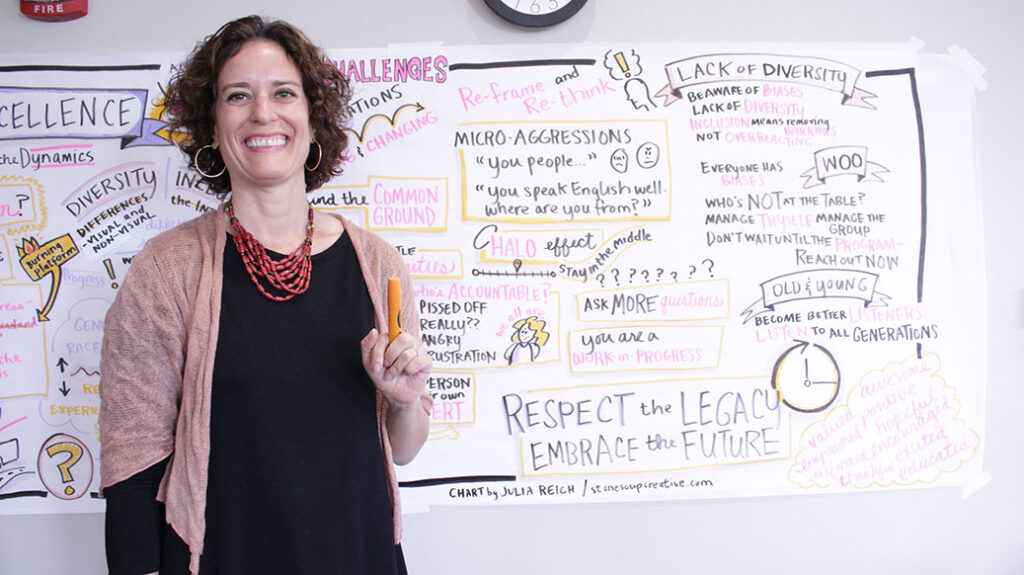 FIRE
CELLENCE
the DYNAMICS
DIVERSITY
DIFFERENCES
-VISUAL and
NON-VISUAL
Burning
Platform
Progress
GEND
RACE
EXPERIE
CHALLENGES
CHANGING
COMMON
GROUND
WHO'S ACCOUNTABLE?
we all are
PISSED OFF
REALLY??
ANGRY
PERSON
Re-frame and
Re-think
MICRO-AGGRESSIONS
"you people..."
"you speak English well.
where are you from?"
HALO effect
STAY in the MIDDLE
? ? ? ? ? ? ?
ASK MORE questions
you are a
WORK-in-PROGRESS
RESPECT the LEGACY
EMBRACE the FUTURE
LACK OF DIVERSITY
BE AWARE OF BIASES
LACK OF DIVERSITY
INCLUSION MEANS removing
BARRIERS
NOT OVERREACTING
WOO
EVERYONE HAS
BIASES
WHO'S NOT AT THE TABLE?
MANAGE THYSELF MANAGE THE
GROUP
DON'T WAIT UNTIL THE PROGRAM-
REACH OUT NOW
OLD & YOUNG
BECOME BETTER LISTENERS
LISTEN TO ALL GENERATIONS
awesome
valued positive
empowered hopeful
encouraged
excited
educated
CHART by JULIA REICH / stonesoupcreative.com